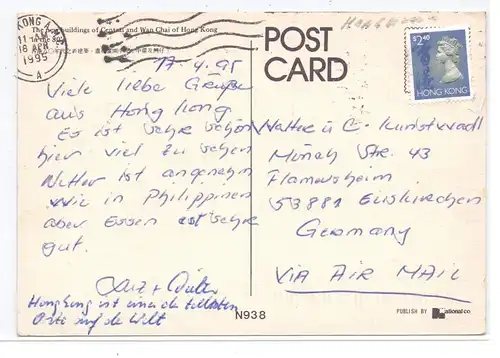 KONG A
11 AM
18 APR
1995
A
The new buildings of Central and Wan Chai of Hong Kong
in the 80's
POST
CARD
$2.40
HONG KONG
17-4.95
Viele liebe Grüße
aus Hong Kong
Es ist sehr schön
hier viel zu sehen
Wetter ist angenehm
wie in Philippinen
aber Essen ist sehr
gut.
Hongkong ist der
Orte auf de Welt
Walter u C.
Münch Str. 43
Flamersheim
53881 Euskirchen
Germany
VIA AIR MAIL
N938
PUBLISH BY National co